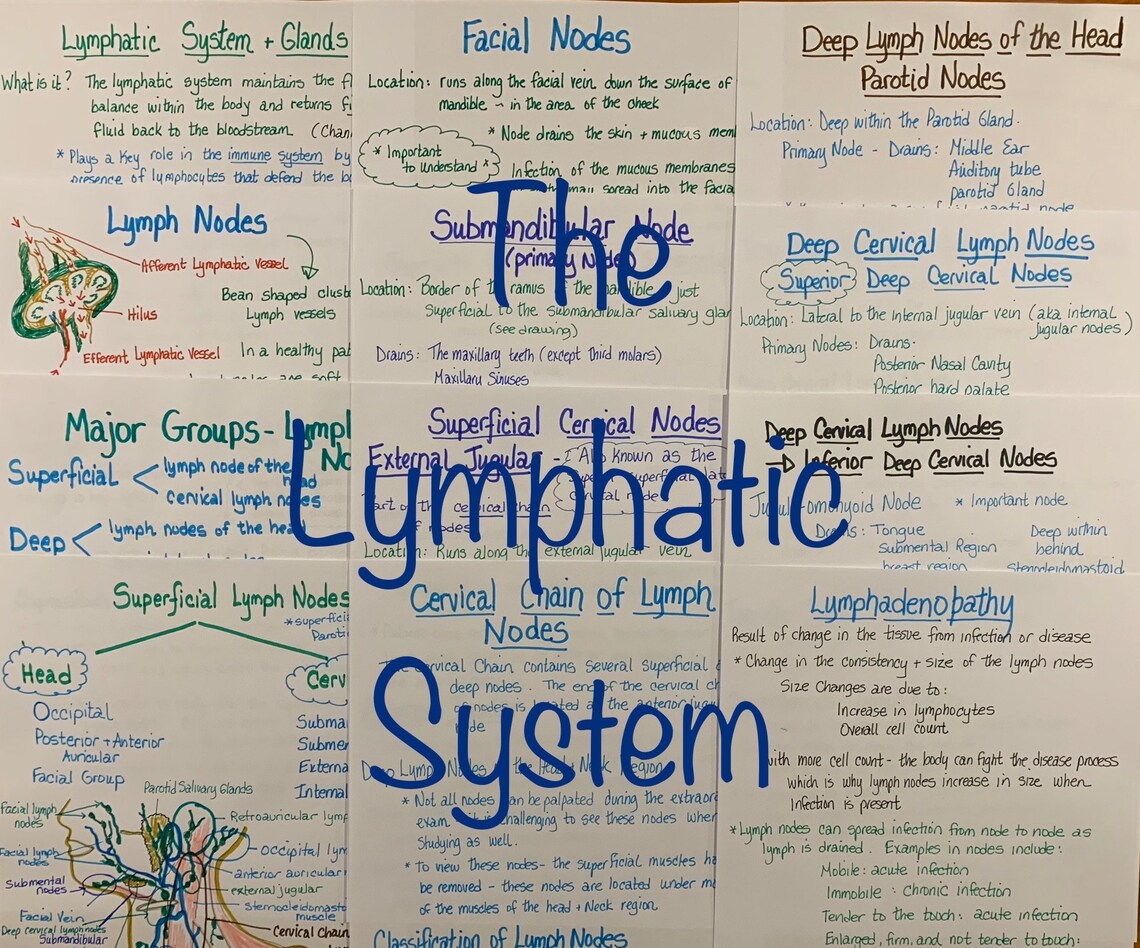 The
Lymphatic
System
Lymphatic System + Glands
What is it? The lymphatic system maintains the
balance within the body and returns
fluid back to the bloodstream
* Plays a key role in the immune system by
presence of lymphocytes that defend the
Lymph Nodes
Afferent Lymphatic Vessel
Bean shaped
Lymph vessels
Hilus
Efferent Lymphatic Vessel
In a healthy
are soft
Major Groups - Lymph
Superficial < lymph node of the head
cervical lymph nodes
Deep < lymph nodes of the head
Superficial Lymph Nodes
Head
Occipital
Posterior + Anterior
Auricular
Facial Group
Parotid Salivary Glands
Facial lymph
nodes
Retroauricular
Facial lymph
nodes
Occipital
Submental
nodes
anterior auricular
external jugular
muscle
Facial Vein
Deep cervical lymph nodes
Submandibular
Cervical Chain
Facial Nodes
Location: runs along the facial vein down the surface of
mandible - in the area of the cheek
* Node drains the skin + mucous
* Important
to understand *
Infection of the mucous membranes
may spread into the
Submandibular Node
(primary Node)
Location: Border of the ramus of the mandible just
Superficial to the submandibular salivary
(see drawing)
Drains: The maxillary teeth (except third molars)
Maxillary Sinuses
Superficial Cervical Nodes
External Jugular - Also known as the
Part of the cervical chain
of nodes
Location: Runs along the external jugular vein
Cervical Chain of Lymph
Nodes
The Cervical Chain contains several superficial
deep nodes. The end of the cervical
of nodes is located at the anterior
node
Deep Lymph Nodes of the Head + Neck Region
* Not all nodes can be palpated during the
exam it is challenging to see these nodes when
studying as well.
* To view these nodes - the superficial muscles
be removed - these nodes are located under
of the muscles of the head + Neck region
Classification of Lymph Nodes
Deep Lymph Nodes of the Head
Parotid Nodes
Location: Deep within the Parotid Gland.
Primary Node - Drains: Middle Ear
Auditory tube
parotid Gland
Deep Cervical Lymph Nodes
Superior Deep Cervical Nodes
Location: Lateral to the internal jugular vein (aka internal
jugular nodes)
Primary Nodes: Drains.
Posterior Nasal Cavity
Posterior hard palate
Deep Cervical Lymph Nodes
Inferior Deep Cervical Nodes
Jugulo-omohyoid Node * Important node
Drains: Tongue
Submental Region
breast region
Deep within
behind
Sternocleidomastoid
Lymphadenopathy
Result of change in the tissue from infection or disease
* Change in the consistency + size of the lymph nodes
Size Changes are due to:
Increase in lymphocytes
Overall cell count
with more cell count - the body can fight the disease process
which is why lymph nodes increase in size when
infection is present
* Lymph nodes can spread infection from node to node as
lymph is drained. Examples in nodes include:
Mobile: acute infection
Immobile: chronic infection
Tender to the touch: acute infection
Enlarged, firm, and not tender to touch: